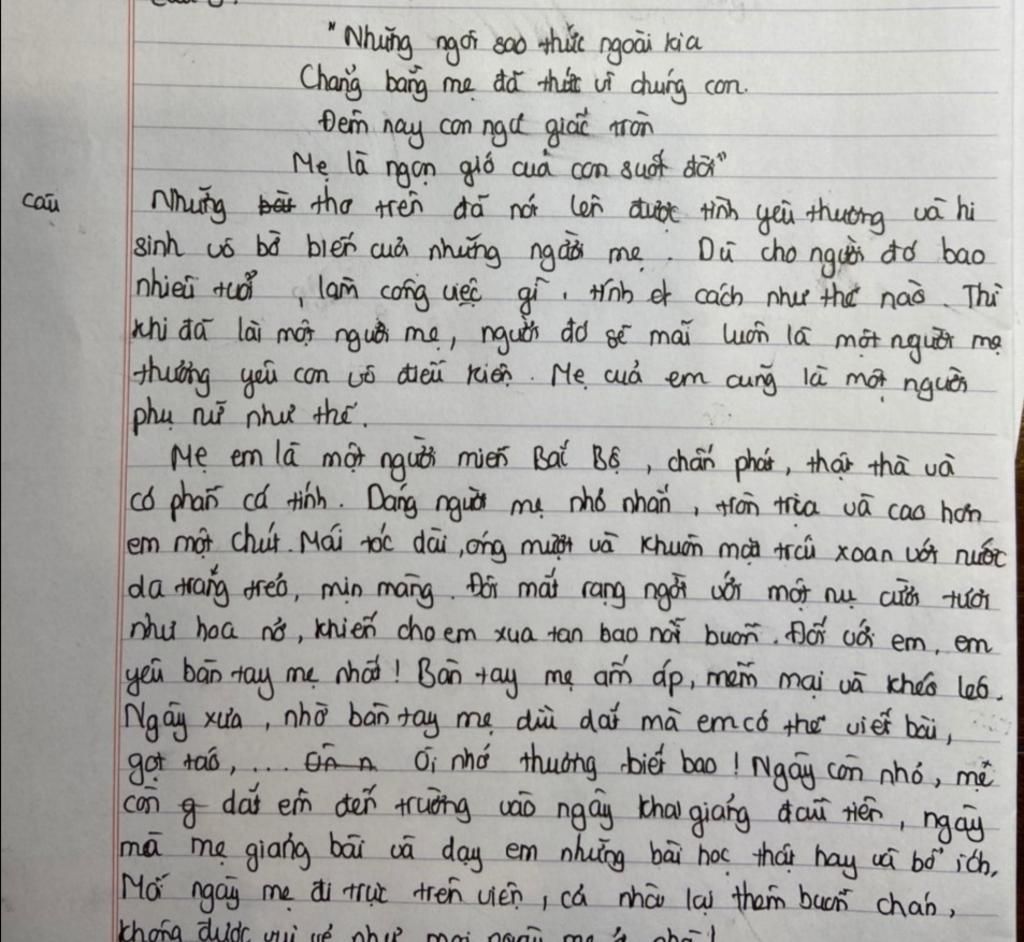 "Những ngôi sao thức ngoài kia
Chẳng bằng mẹ đã thức vì chúng con.
Đêm nay con ngủ giấc tròn
Mẹ là ngọn gió của con suốt đời"
câu
Những thơ trên đã nói lên được tình yêu thương và hi
sinh vô bờ biến của những người mẹ. Dù cho người đó bao
nhiêu tuổi, làm công việc gì, tính cách như thế nào. Thì
khi đã lài một người mẹ, người đó sẽ mãi luôn là một người mẹ
thương yêu con vô điều kiện. Mẹ của em cũng là một người
phụ nữ như thế.
Mẹ em là một người miền Bắc Bộ, chân phát, thật thà và
có phần cá tính. Dáng người mẹ nhỏ nhắn, tròn trịa và cao hơn
em một chút. Mái tóc dài, óng mượt và khuôn mặt trái xoan với nước
da trắng trẻo, mịn màng. Đôi mắt rạng ngời với một nụ cười tươi
như hoa nở, khiến cho em xua tan bao nỗi buồn. Đối với em, em
yêu bàn tay mẹ nhất! Bàn tay mẹ ấm áp, mềm mại và khéo léo.
Ngày xưa, nhờ bàn tay mẹ dìu dắt mà em có thể viết bài,
gọt táo, ... Ôi nhớ thương biết bao! Ngày còn nhỏ, mẹ
còn dắt em đến trường vào ngày khai giảng đầu tiên, ngày
mà mẹ giảng bài và dạy em những bài học thật hay và bổ ích.
Mỗi ngày mẹ đi trực trên viện, cả nhà lại thêm buồn chán,
không được vui vẻ như mọi ngày mẹ ở nhà!